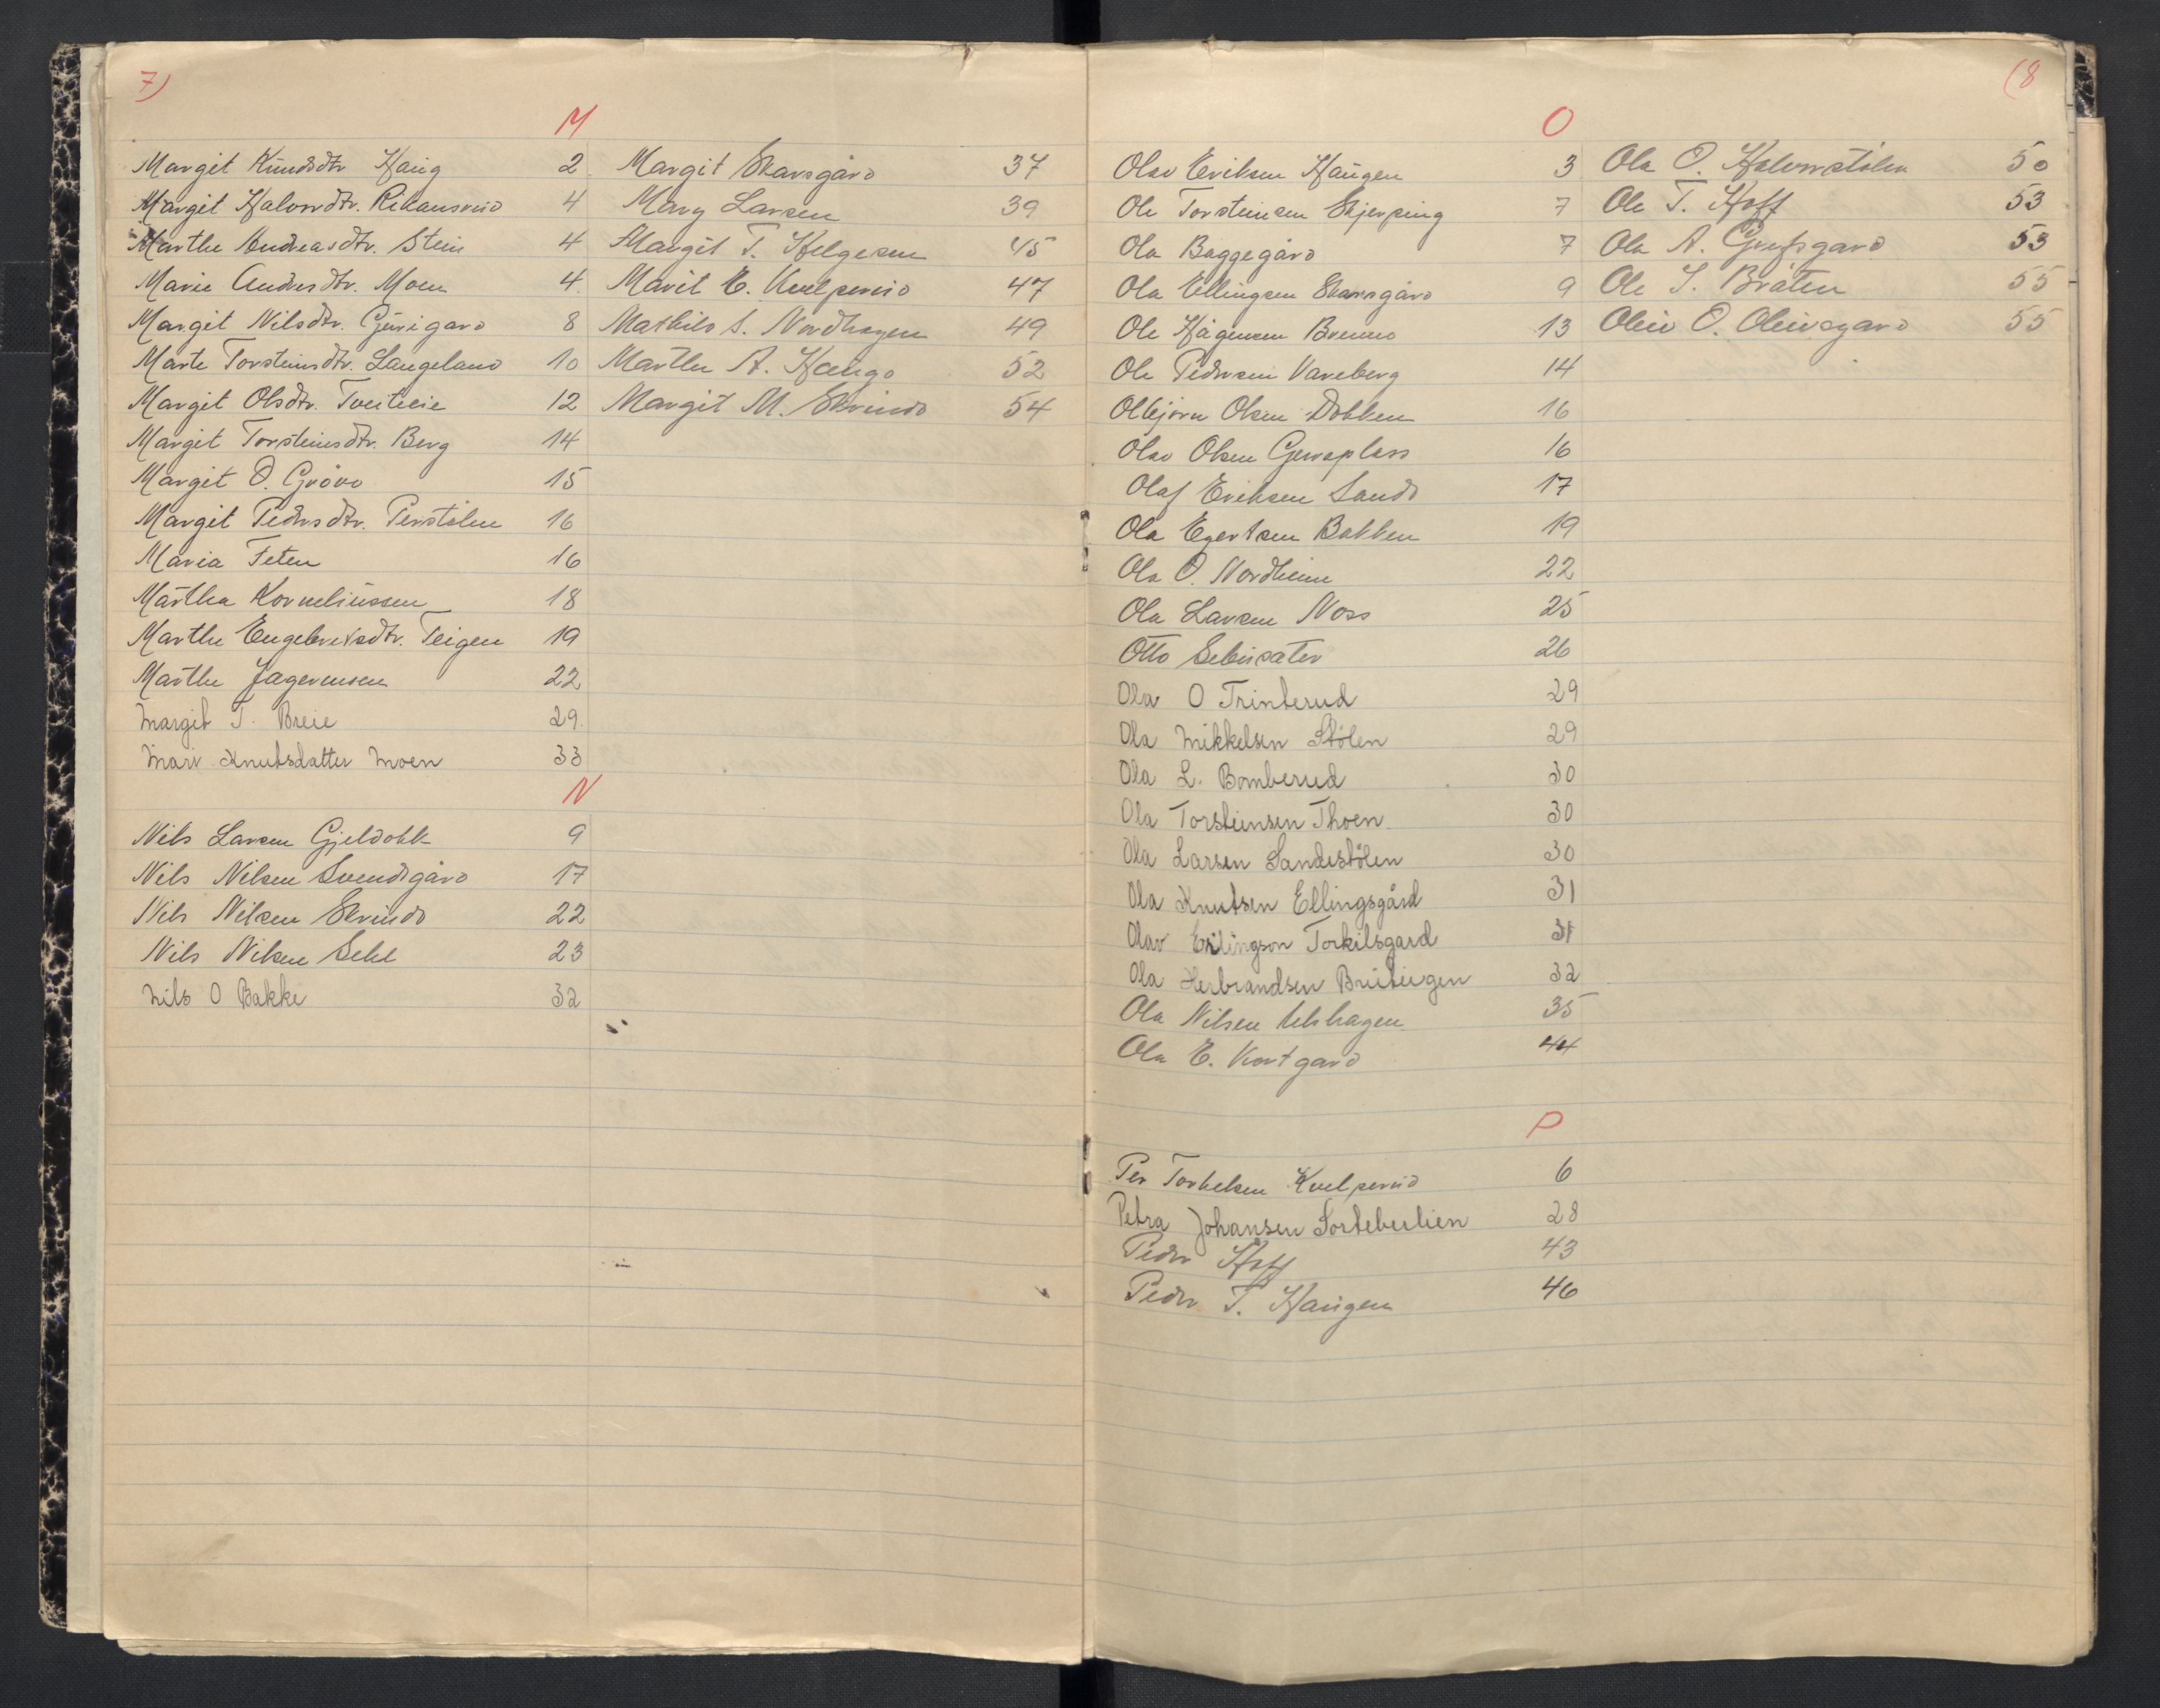 7)
M
Margit Knudsdtr Haug 2
Margit Halvorsdtr. 4
Marthe Andreasdtr. Stein 4
Marie Andersdtr. Moen 4
Margit Nilsdtr. Gurigard 8
Marte Torsteinsdtr. Langeland 10
Margit Olsdtr. Tveiteeie 12
Margit Torsteinsdtr. Berg 14
Margit O. Grøvo 15
Margit Pedersdtr. Perstølen 16
Maria Feten 16
Marthea Korneliussen 18
Marthe Engebretsdtr. Teigen 19
Marthe Jagerensen 22
Margit T. Breie 29
Mari Knutsdatter Moen 33
Margit Skarsgård 37
Mary Larsen 39
Margit T. Helgesen 45
Marit E. Kvelprud 47
Mathild S. Nordhagen 49
Marthe A. Haugo 52
Margit M. Skrindo 54
N
Nils Larsen Gjeldokk 9
Nils Nilsen Svendsgård 17
Nils Nilsen Skrindo 22
Nils Nilsen Sehl 23
Nils O Bakke 32
(8
O
Olav Eriksen Haugen 3
Ole Torsteinsen Skjerping 7
Ola Baggegård 7
Ola Ellingsen Skarsgård 9
Ole Hågensen Brenno 13
Ole Pedersen Vareberg 14
Olbjørn Olsen Dokken 16
Olav Olsen Gjerdeplass 16
Olaf Eriksen Sando 17
Ola Egertsen Bakken 19
Ola O. Nordheim 22
Ola Larsen Noss 25
Otto Sebusæter 26
Ola O Trinterud 29
Ola Mikkelsen Stølen 29
Ola L. Bomberud 30
Ola Torsteinsen Thoen 30
Ola Larsen Sandestølen 30
Ola Knutsen Ellingsgård 31
Olav Erlingson Torkilsgard 31
Ola Herbrandsen Bruteigen 32
Ola Nilsen Ulshagen 35
Ola E. Kortgard 44
Ola O. Halvorstølen 50
Ole T. Hoff 53
Ola A. 53
Ole S. Bråten 55
Oleiv O. Oleivsgard 55
P
Per Torkelsen Kvelprud 6
Petra Johansen Sorteberlien 28
Peder Hoff 43
Peder T. Haugen 46